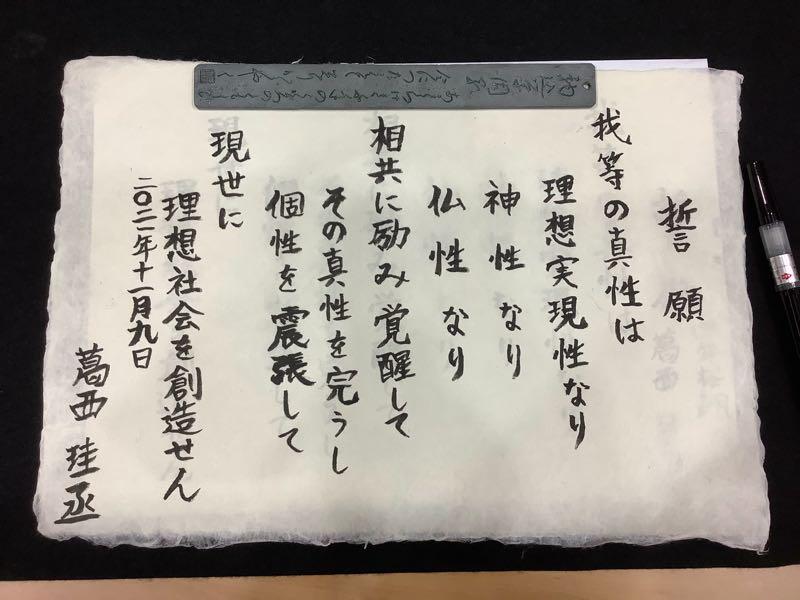 誓願
我等の真性は
理想実現性なり
神性なり
仏性なり
相共に励み覚醒して
その真性を完うし
個性を震張して
現世に
理想社会を創造せん
二〇二一年十一月九日
葛西珪丞